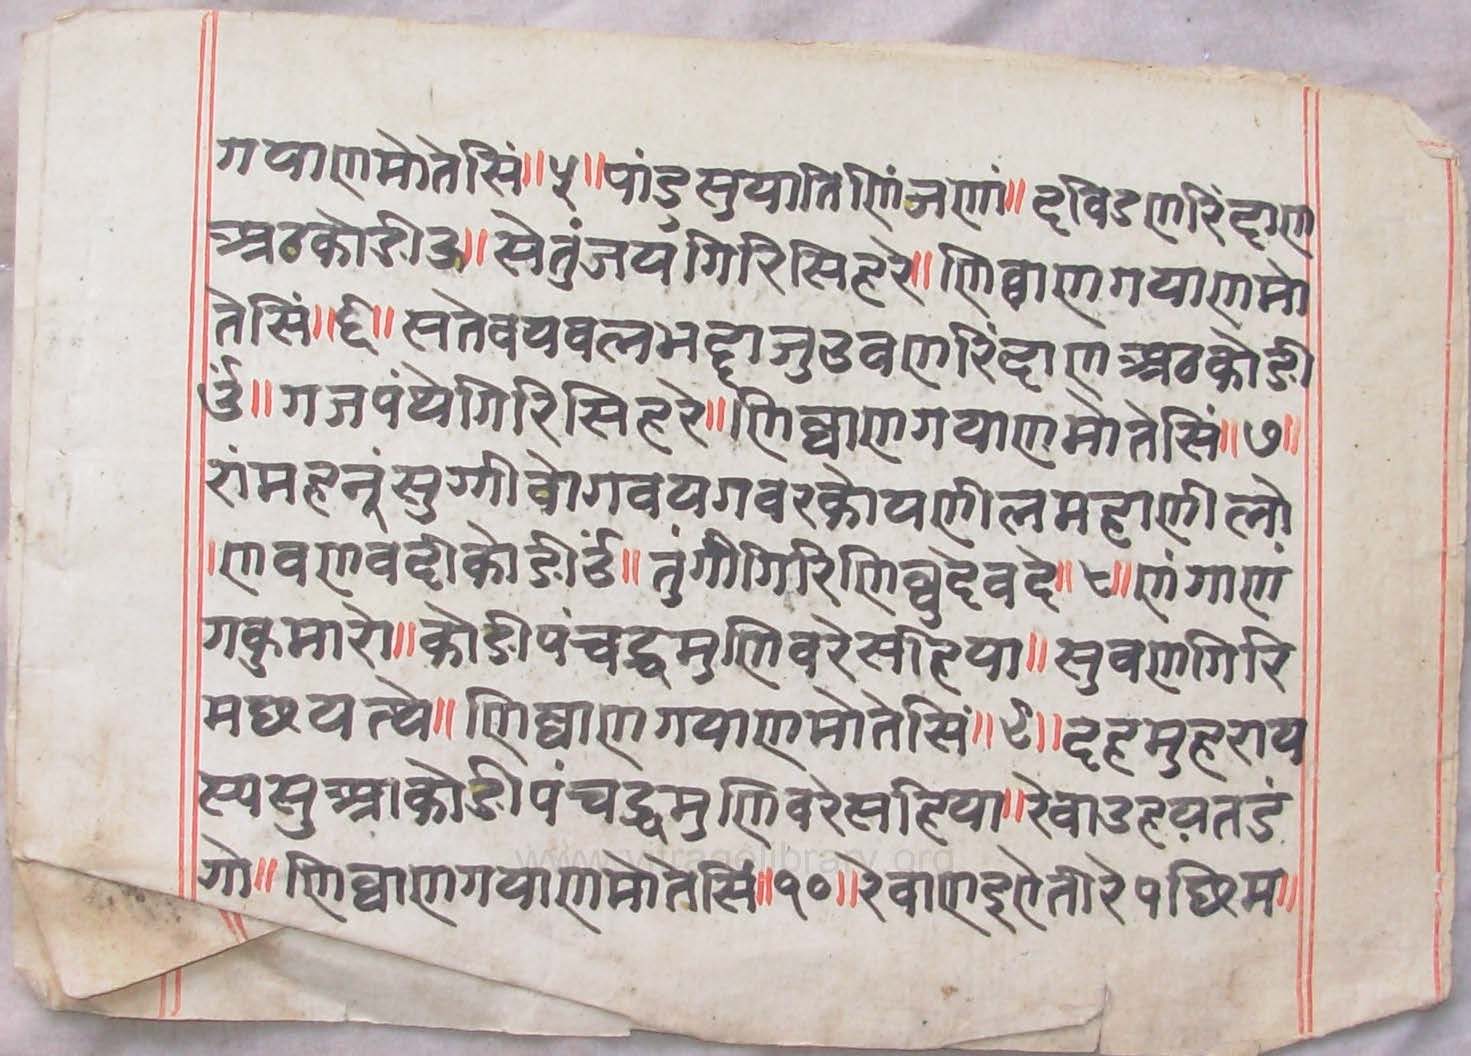 गयाणमोतेसिं॥५॥पांडुसुयातिणिंजणां॥दविडणरिंदाण
अठकोडीउ॥सेतुंजयंगिरिसिहरे॥णिव्वाणगयाणमो
तेसिं॥६॥सतेवयवलभद्दाजुउवणरिंदाणअठकोडी
उं॥गजपंयेगिरिसिहरे॥णिव्वाणगयाणमोतेसिं॥७॥
रांमहनूंसुग्गीवोगवयगवरकोयणीलमहाणीलो
।णवणवदीकोडीउं॥तुंगीगिरिणिव्वुदेवदे॥८॥णंगाणं
गकुमारो॥कोडीपंचद्धमुणिवरेसहिया॥सुवणगिरि
मछयत्थे॥णिव्वाणगयाणमोतेसिं॥९॥दहमुहराय
स्यसुआकोडीपंचद्धमुणिवरेसहिया॥रेवाउहयतडं
गो॥णिव्वाणगयाणमोतेसिं॥१०॥रेवाणइऐतीरेपछिम॥
www.vitragelibrary.org